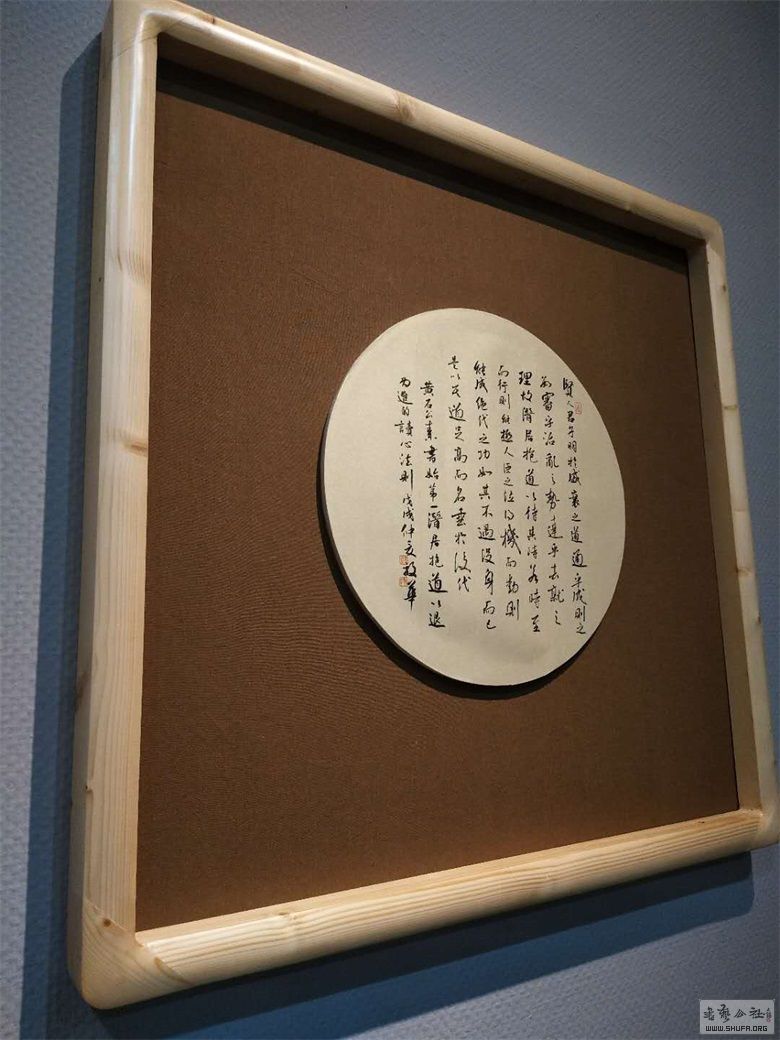 賢人君子明於盛衰之道通乎成敗之
數審乎治亂之勢達乎去就之
理故潛居抱道以待其時若時至
而行則能極人臣之位得機而動則
能成绝代之功如其不遇没身而已
是以其道足高而名重於後代
黄石公素書始第一潛居抱道以退
为進的讀心法則 戊戌仲夏 華
書藝公社
WWW.SHUFA.ORG